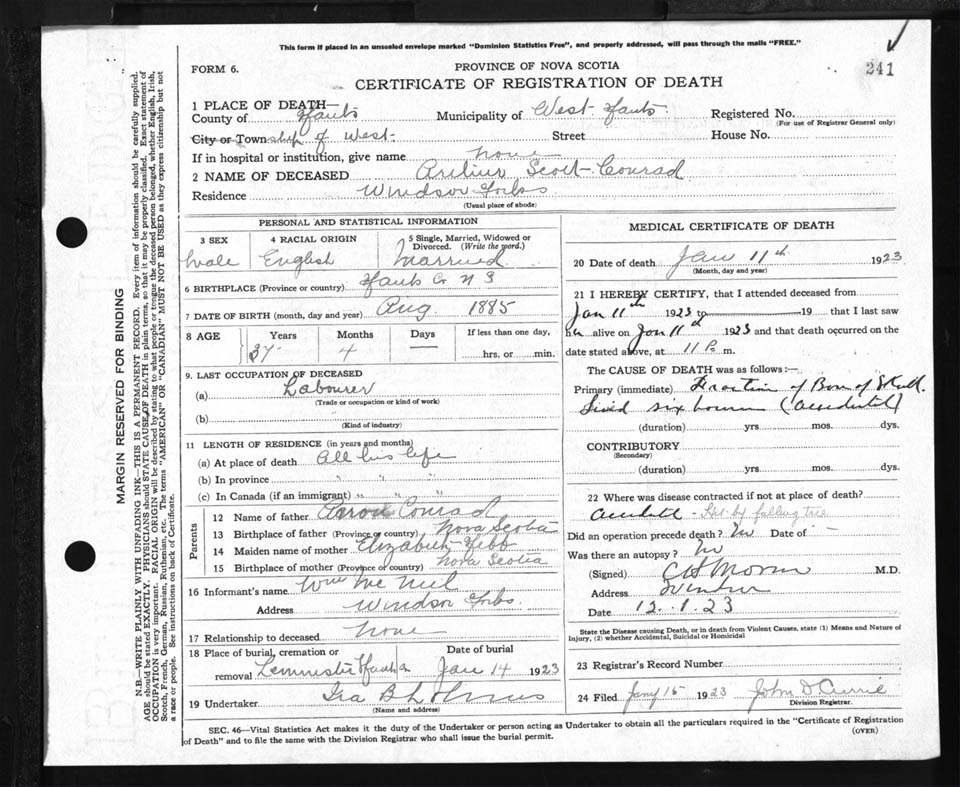 This form if placed in an unsealed envelope marked "Dominion Statistics Free", and properly addressed, will pass through the mails "FREE."
241
FORM 6.
PROVINCE OF NOVA SCOTIA
CERTIFICATE OF REGISTRATION OF DEATH
1 PLACE OF DEATH—
County of Hants Municipality of West Hants Registered No.
(For use of Registrar General only)
City or Township of West Street House No.
If in hospital or institution, give name none
2 NAME OF DECEASED Arthur Scott Conrad
Residence Windsor Forks
(Usual place of abode)
PERSONAL AND STATISTICAL INFORMATION
3 SEX 4 RACIAL ORIGIN 5 Single, Married, Widowed or Divorced. (Write the word.)
Male English Married
6 BIRTHPLACE (Province or country) Hants Co N S
7 DATE OF BIRTH (month, day and year) Aug. 1885
8 AGE Years Months Days If less than one day,
37 4 — hrs. or min.
9. LAST OCCUPATION OF DECEASED
(a) Labourer
(Trade or occupation or kind of work)
(b)
(Kind of industry)
11 LENGTH OF RESIDENCE (in years and months)
(a) At place of death All his life
(b) In province " " "
(c) In Canada (if an immigrant) " " "
Parents
12 Name of father Conrad
13 Birthplace of father (Province or country) Nova Scotia
14 Maiden name of mother Elizabeth
15 Birthplace of mother (Province or country) Nova Scotia
16 Informant's name Wm Mc Neil
Address Windsor Forks.
17 Relationship to deceased none
18 Place of burial, cremation or removal Date of burial
Hants Co Jan 14 1923
19 Undertaker Ira B Lohnes
(Name and address)
MEDICAL CERTIFICATE OF DEATH
20 Date of death Jan 11th 1923
(Month, day and year)
21 I HEREBY CERTIFY, that I attended deceased from
Jan 11th 1923 to 19 that I last saw
him alive on Jan 11th 1923 and that death occurred on the
date stated above, at 11 P. m.
The CAUSE OF DEATH was as follows:—
Primary (immediate) Fracture of Base of Skull.
Lived six hours (accidental)
(duration) yrs. mos. dys.
CONTRIBUTORY
(Secondary)
(duration) yrs. mos. dys.
22 Where was disease contracted if not at place of death?
accidental - Hit by falling tree
Did an operation precede death? No Date of —
Was there an autopsy? No
(Signed) M.D.
Address Windsor
Date 12.1.23
State the Disease causing Death, or in death from Violent Causes, state (1) Means and Nature of Injury, (2) whether Accidental, Suicidal or Homicidal
23 Registrar's Record Number
24 Filed Jany 15 1923 John D Currie
Division Registrar.
SEC. 46—Vital Statistics Act makes it the duty of the Undertaker or person acting as Undertaker to obtain all the particulars required in the "Certificate of Registration
of Death" and to file the same with the Division Registrar who shall issue the burial permit.
(OVER)
MARGIN RESERVED FOR BINDING
N.B.—WRITE PLAINLY WITH UNFADING INK—THIS IS A PERMANENT RECORD. Every item of information should be carefully supplied.
AGE should be stated EXACTLY. PHYSICIANS should STATE CAUSE OF DEATH in plain terms, so that it may be properly classified. Exact statement of
OCCUPATION is very important. RACIAL ORIGIN will be described by stating to what people or tongue the deceased person belonged, whether English, Irish,
Scotch, French, German, Russian, Ruthenian, etc. The terms "AMERICAN" OR "CANADIAN" MUST NOT BE USED as they express citizenship but not
a race or people. See instructions on back of Certificate.